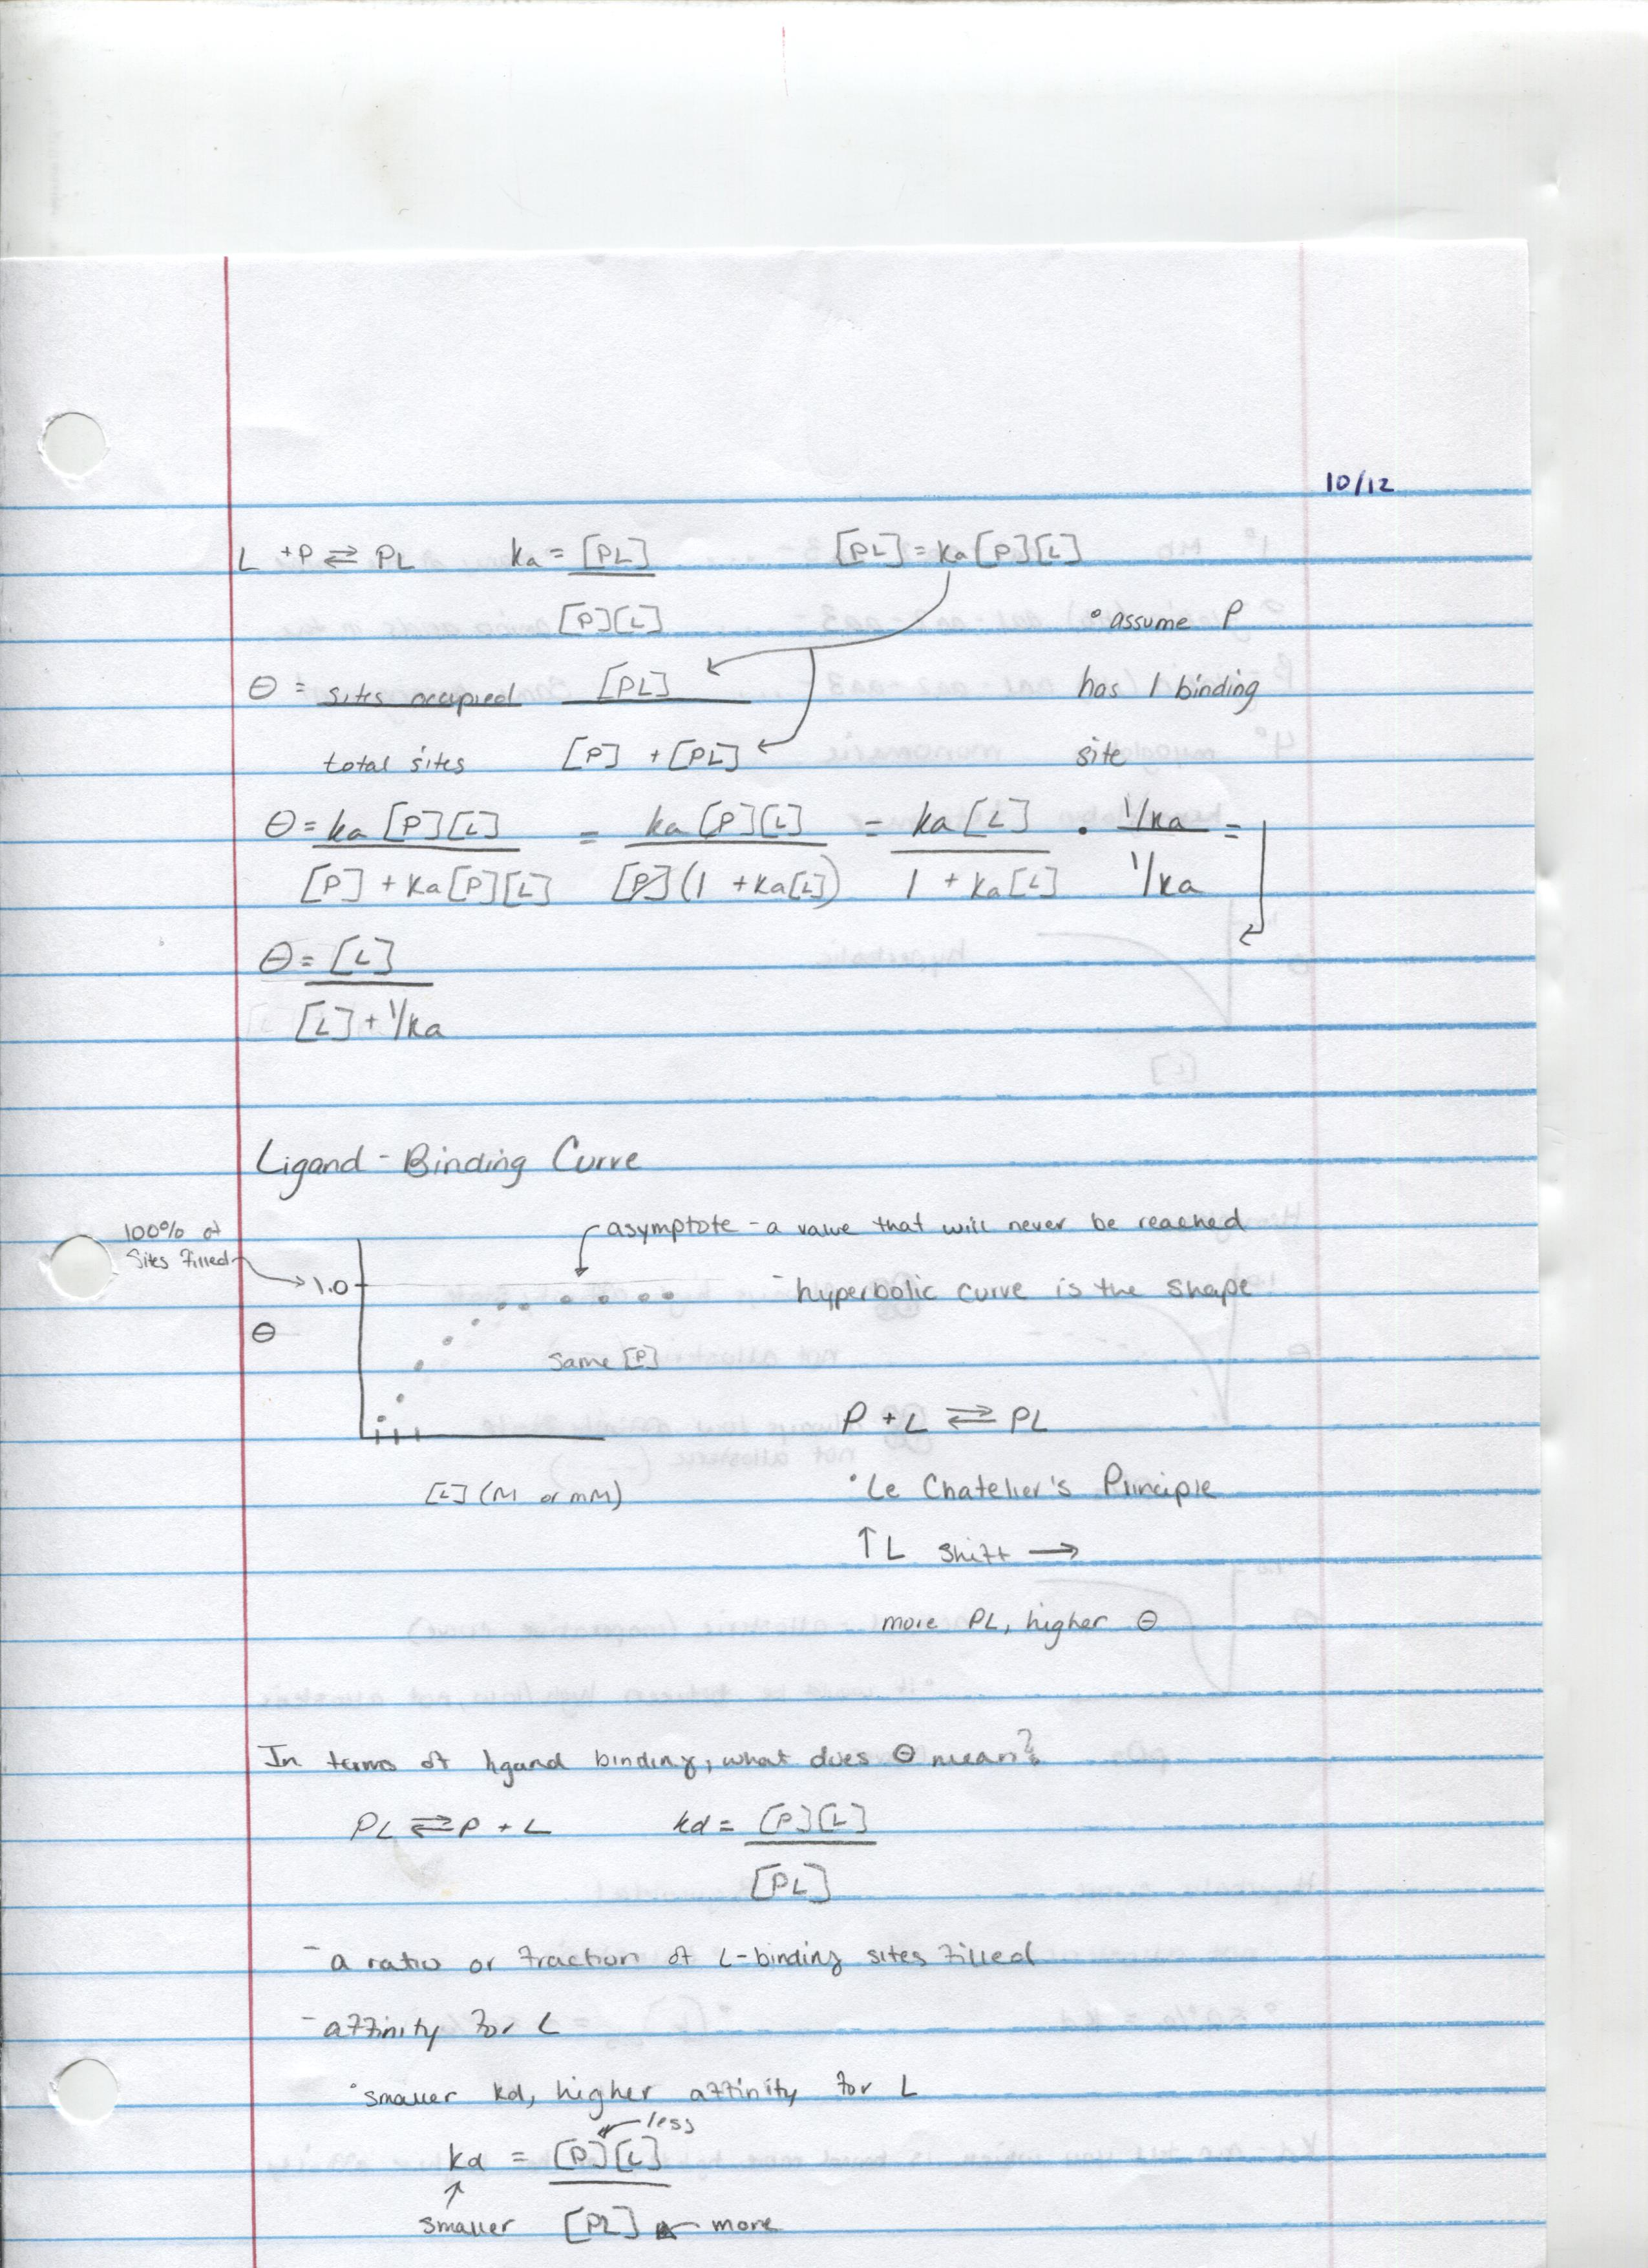 10/12
L + P ⇌ PL ka = [PL] [PL] = ka[P][L]
[P][L] ° assume P
θ = sites occupied [PL] has 1 binding
total sites [P] + [PL] site
θ = ka[P][L] = ka[P][L] = ka[L] · 1/ka =
[P] + ka[P][L] [P](1 + ka[L]) 1 + ka[L] 1/ka
θ = [L]
[L] + 1/ka
Ligand - Binding Curve
100% of
sites filled
asymptote - a value that will never be reached
1.0
- hyperbolic curve is the shape
θ
same [P]
P + L ⇌ PL
[L] (M or mM)
° Le Chatelier's Principle
↑ L shift →
more PL, higher θ
In terms of ligand binding, what does θ mean?
PL ⇌ P + L kd = [P][L]
[PL]
- a ratio or fraction of L-binding sites filled
- affinity for L
° smaller kd, higher affinity for L
less
kd = [P][L]
smaller [PL] more